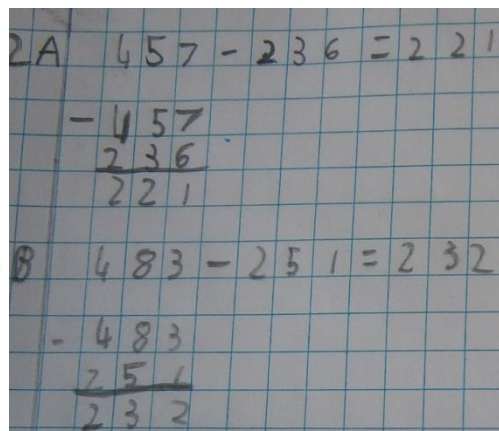 2A 457 - 236 = 221
- 457
236
221
B 483 - 251 = 232
- 483
251
232